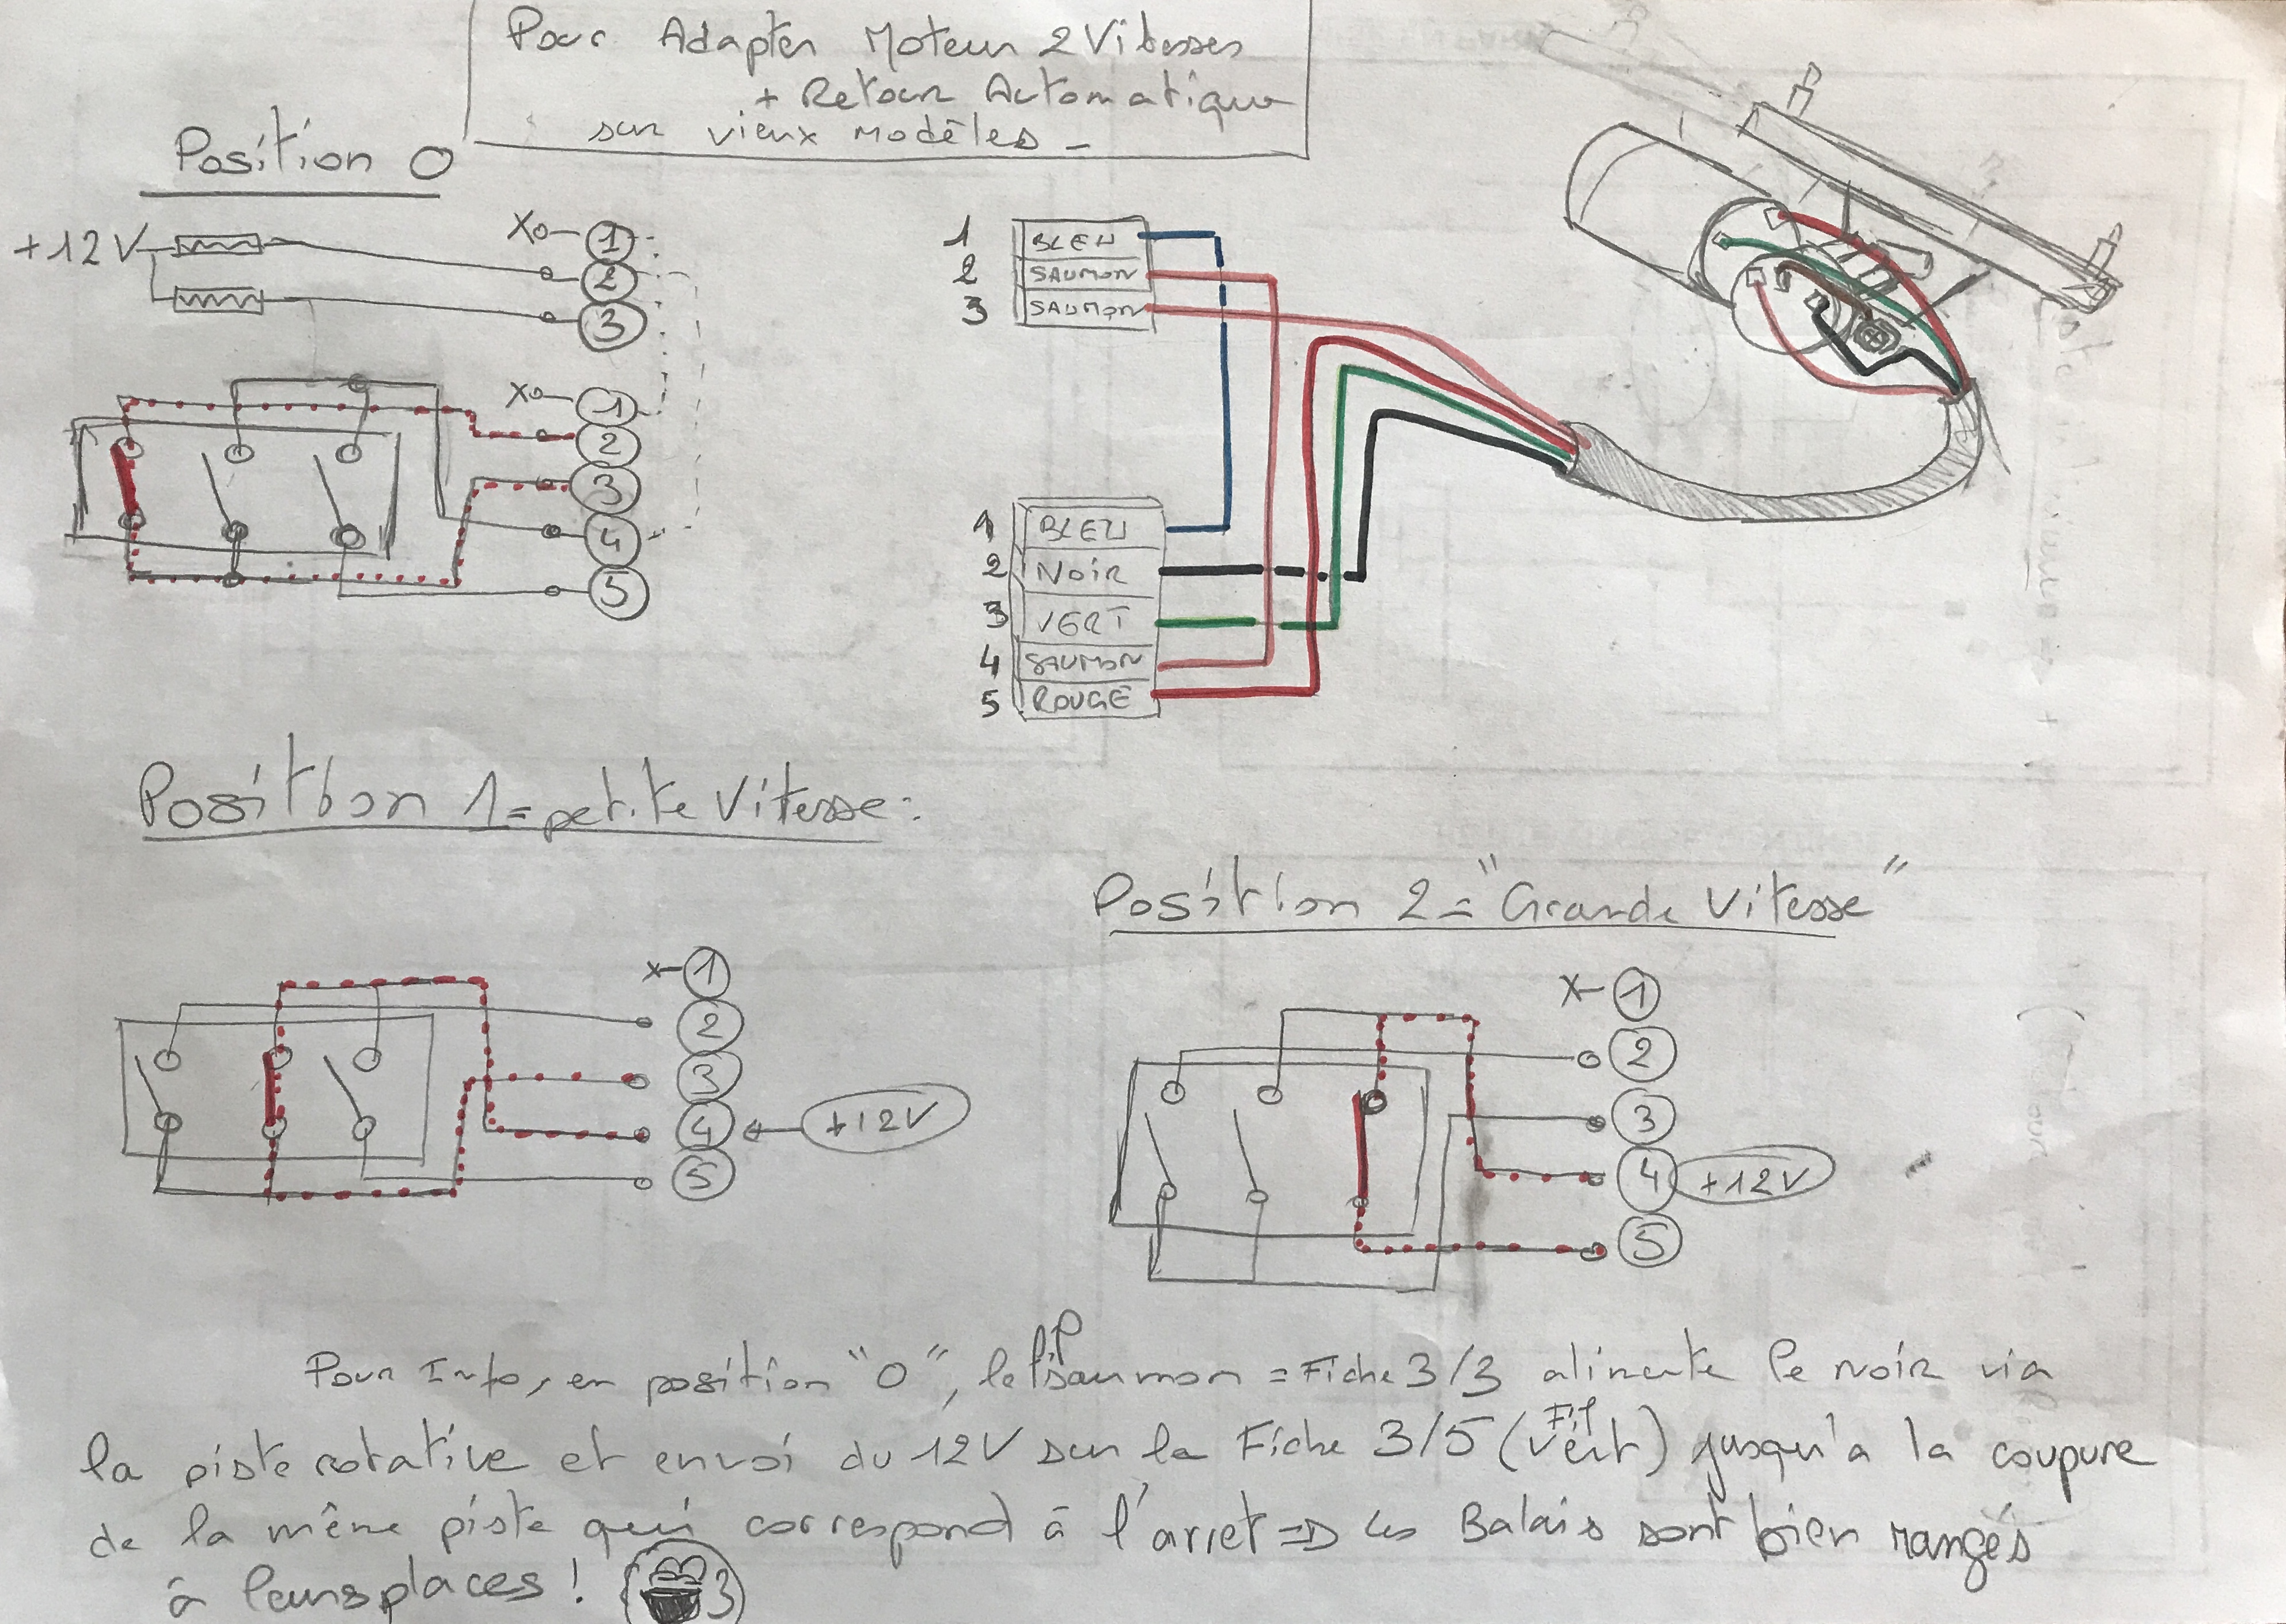 Pour Adapter Moteur 2 Vitesses
+ Retour Automatique
sur vieux modèles -
Position 0
+12V
X
1
2
3
X
1
2
3
4
5
1 BLEU
2 SAUMON
3 SAUMON
1 BLEU
2 NOIR
3 VERT
4 SAUMON
5 ROUGE
Position 1 = petite Vitesse :
X 1
2
3
4 +12V
5
Position 2 = "Grande Vitesse"
X 1
2
3
4 +12V
5
Pour Info, en position "0", le fil saumon = Fiche 3/3 alimente le noir via
la piste rotative et envoi du 12V sur la Fiche 3/5 (Fil Vert) jusqu'a la coupure
de la même piste qui correspond à l'arret => les Balais sont bien rangés
à leurs places !